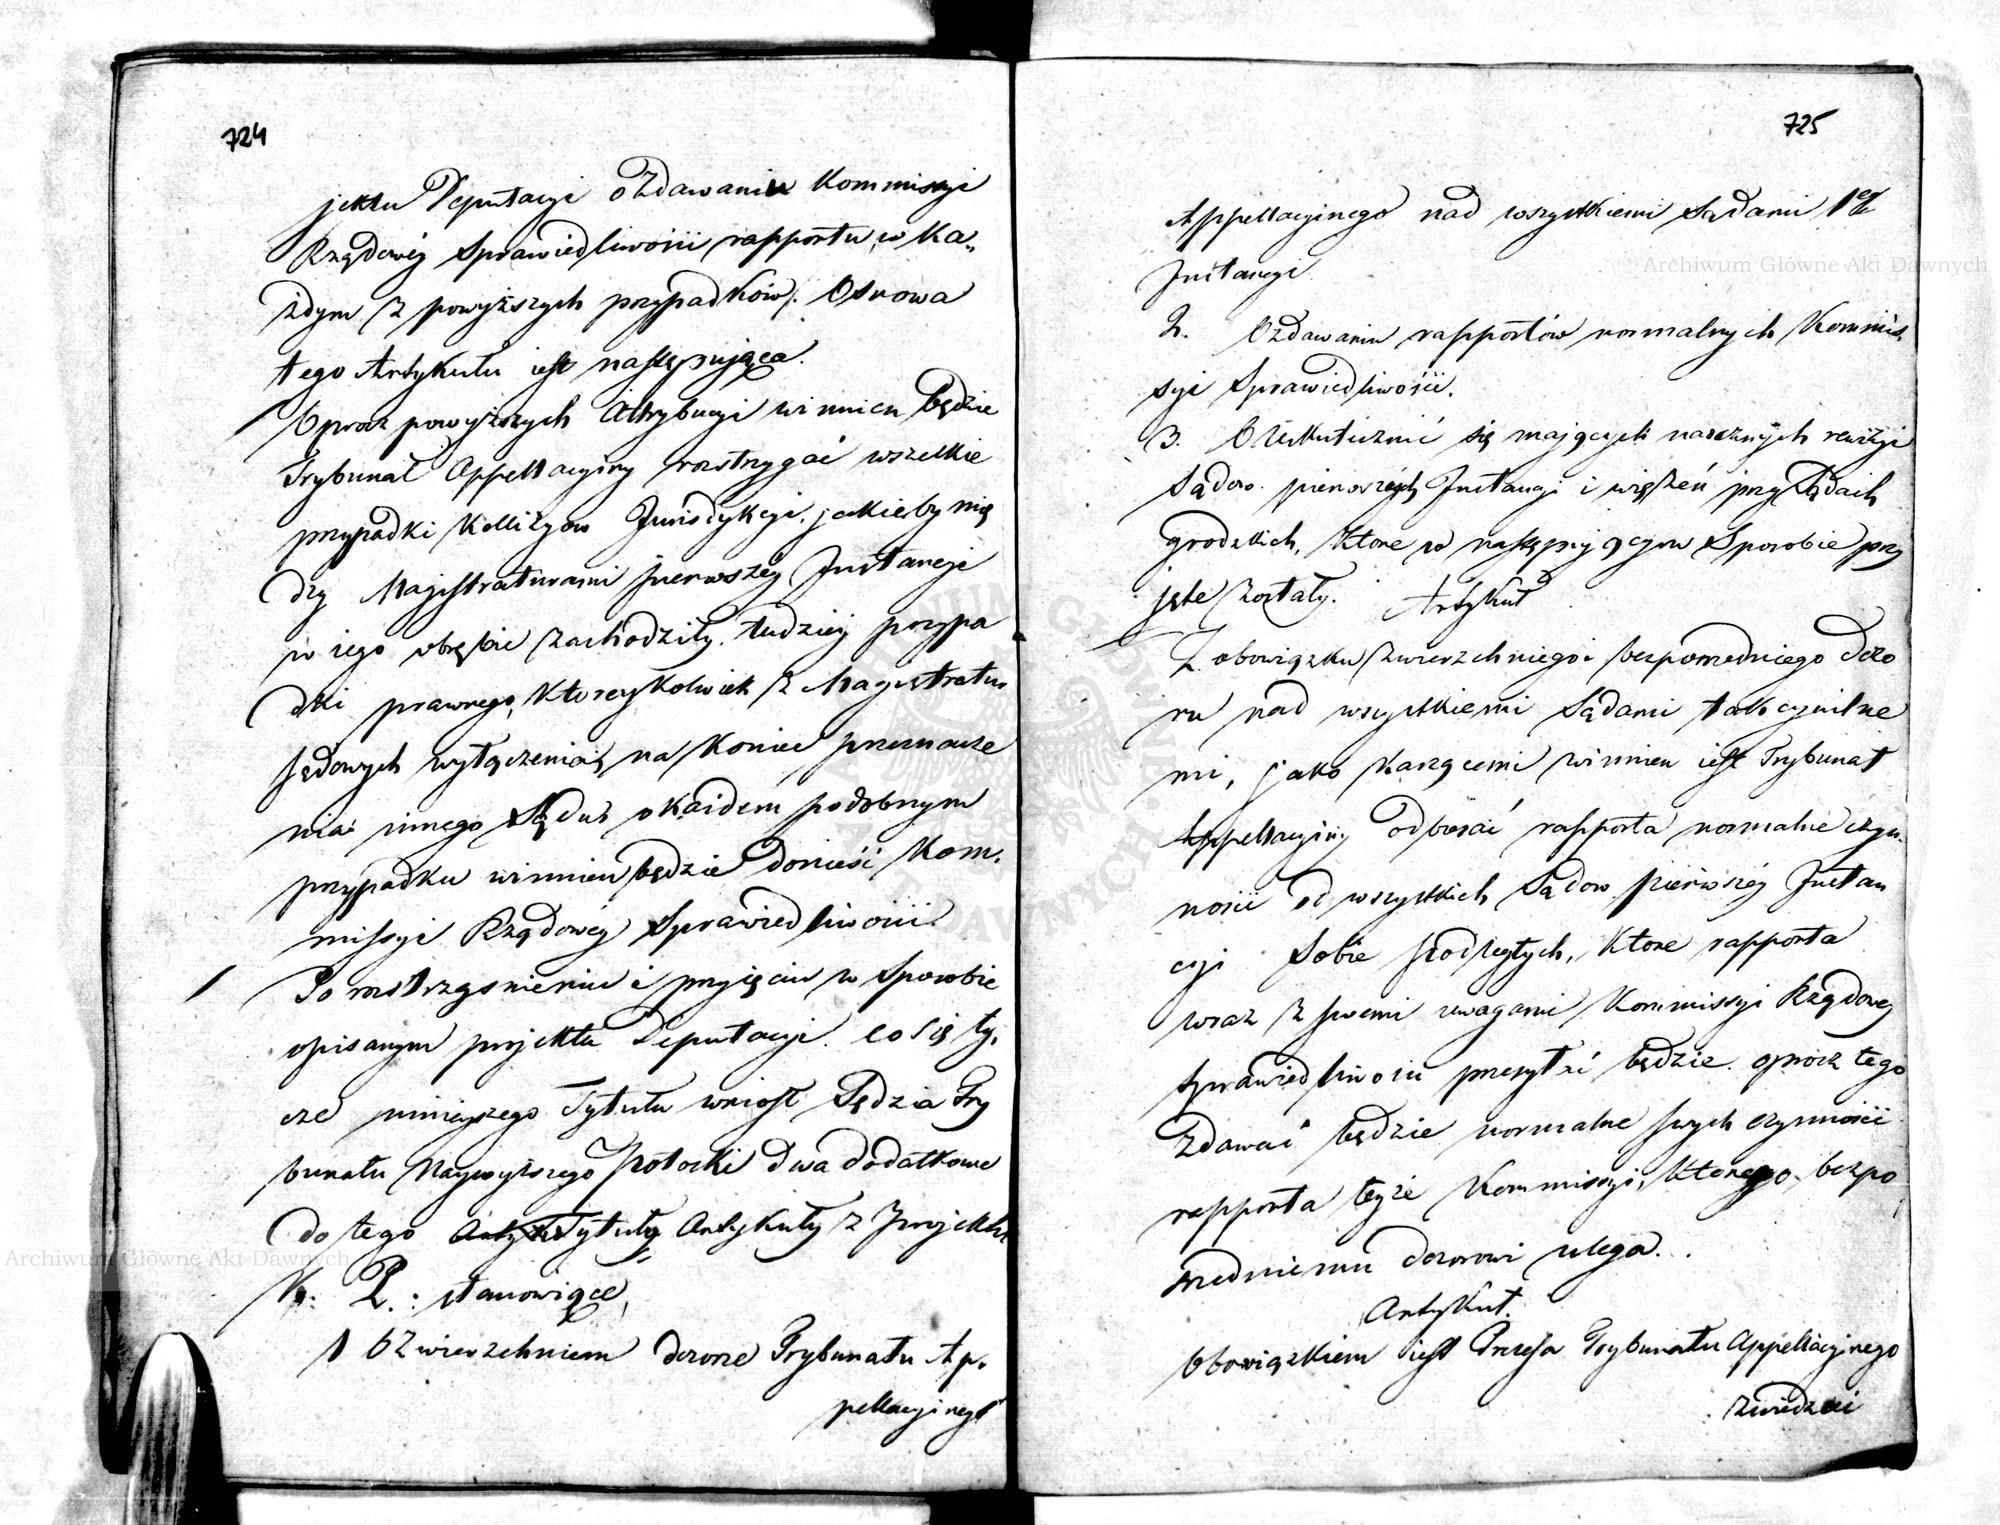 724
jektu Deputacyi o Zdawaniu Kommissyi
Rządowéy Sprawiedliwości rapportu, w Ka„
żdym z powyższych przypadków. Osnowa
tego Artykułu iest następuiąca.
Oprócz powyższych Attrybucyi winnien będzie
Trybunał Appellacyiny rozstrzygać wszelkie
przypadki Kollizyow Jurisdykcyi, jakieby mię
dzy Magistraturami pierwszéy Instancyi
w iego obrębie zachodziły, tudzież przypa
dki prawnego, któreykolwiek z Magistratur
sądowych wyłączenia, na koniec przeznacze
nia innego Sądu: o każdem podobnym
przypadku winnien będzie donieść Kom„
missyi Rządowéy Sprawiedliwości.
Po roztrząśnieniu i przyięciu w Sposobie
opisanym projektu Deputacyi. co się ty„
cze ninieyszego Tytułu wniósł Sędzia Try
bunału Naywyższego Potocki dwa dodatkowe
do tego Tytułu Artykuły z Projektu
K. P.: stanowiące,
1 O Zwierzchniem dozorze Trybunału Ap„
pellacyinego
725
Appellacyinego nad wszystkiemi Sądami 1éy
Instancyi
2. O Zdawaniu rapportów normalnych Kommis„
syi Sprawiedliwości.
3. O Uskutecznić się maiących naocznych rewizyi
Sądów pierwszych Instancyi i więzień przy Sądach
grodzkich, które w następuiącym Sposobie przy
jęte zostały. Artykuł
Z obowiązku zwierzchniego i bezpośredniego dozo
ru nad wszystkiemi Sądami tak cywilne
mi, jako karzącemi winnien iest Trybunał
Appellacyiny odbierać rapporta normalne czyn„
ności od wszystkich Sądów pierwszéy Instan
cyi Sobie podległych, które rapporta
wraz z swemi uwagami Kommissyi Rządowéy
Sprawiedliwości przesyłać będzie. oprócz tego
Zdawać będzie normalne swych czynności
rapporta teyże Kommissyi, którego bezpo
średniemu dozorowi ulega.
Artykuł.
Obowiązkiem iest Prezesa Trybunału Appellacyinego
zwiedzać
Archiwum Główne Akt Dawnych
Archiwum Główne Akt Dawnych